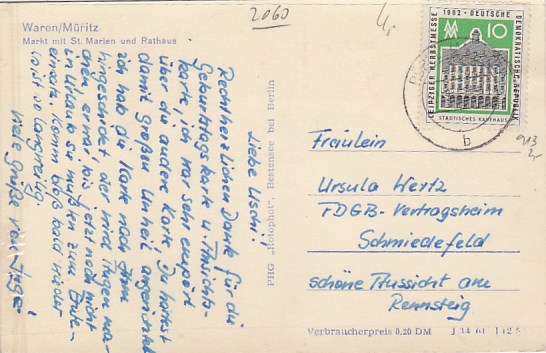 Waren/Müritz
Markt mit St. Marien und Rathaus
2060
4,-
LEIPZIGER HERBSTMESSE 1962 · DEUTSCHE DEMOKRATISCHE REPUBLIK
10
STÄDTISCHES KAUFHAUS
b
913
2,-
Liebe Uschi!
Recht herzlichen Dank für die
Geburtstagskarte u. Ansichts-
karte, ich war sehr empört
über die andere Karte. Du hättest
damit großen Unheil angerichtet
ich hab die Karte nach
hingeschickt, der wird Augen ma-
chen, er war bis jetzt noch nicht
in Urlaub sie mußten zum Ernte-
einsatz. Komm bloß bald wieder
ist so langweilig.
Viele Grüße von Inge!
PHG „Rotophot", Bestensee bei Berlin
Fräulein
Ursula Wertz
FDGB-Vertragsheim
Schmiedefeld
schöne Aussicht am
Rennsteig
Verbraucherpreis 0,20 DM J 34 61 I 12 5